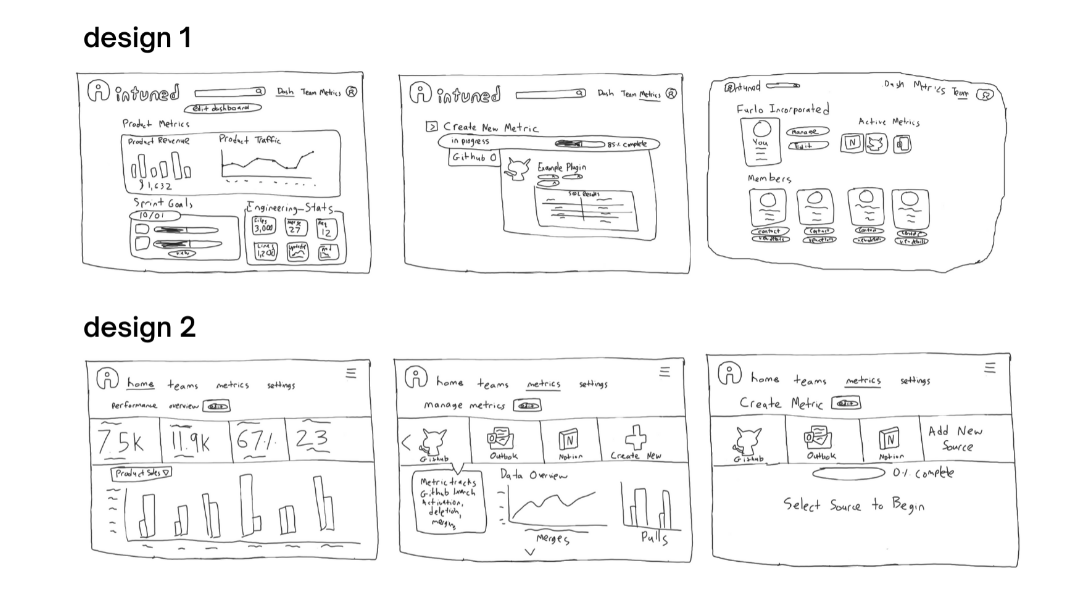 design 1
intuned Dash Team Metrics
Edit dashboard
Product Metrics
Product Revenue Product Traffic
$1,632
Sprint Goals
10/01
Engineering Stats
3,000 27 12
Line
1,200
intuned Dash Team Metrics
Create New Metric
in progress 85% complete
Github
Example Plugin
intuned Dash Metrics Team
Furlo Incorporated
You
Manage
Active Metrics
N
Members
contact contact contact
design 2
home teams metrics settings
Performance overview edit
7.5K 11.9K 67% 23
Product Sales
home teams metrics settings
manage metrics edit
Github Outlook N Notion Create New
Metric tracks
Github branch
activation,
deletion,
merging
Data Overview
Merges Pulls
home teams metrics settings
Create Metric edit
Github Outlook N Notion Add New
Source
0% complete
Select Source to Begin